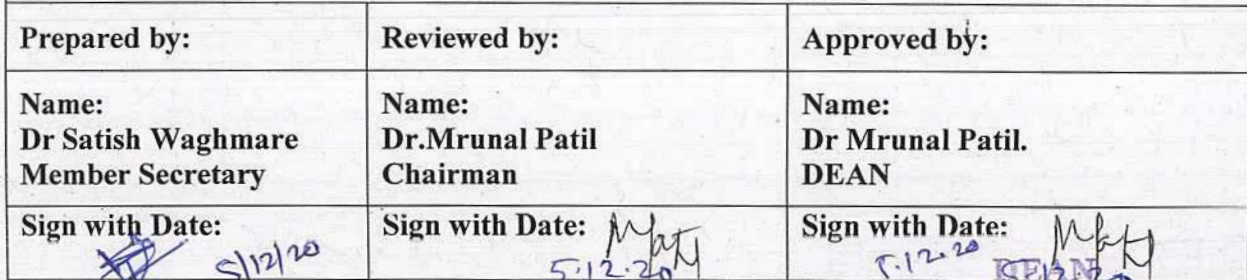 Prepared by:
Reviewed by:
Approved by:
Name:
Dr Satish Waghmare
Member Secretary
Name:
Dr.Mrunal Patil
Chairman
Name:
Dr Mrunal Patil.
DEAN
Sign with Date:
5/12/20
Sign with Date:
5.12.20
Sign with Date:
5.12.20
DEAN